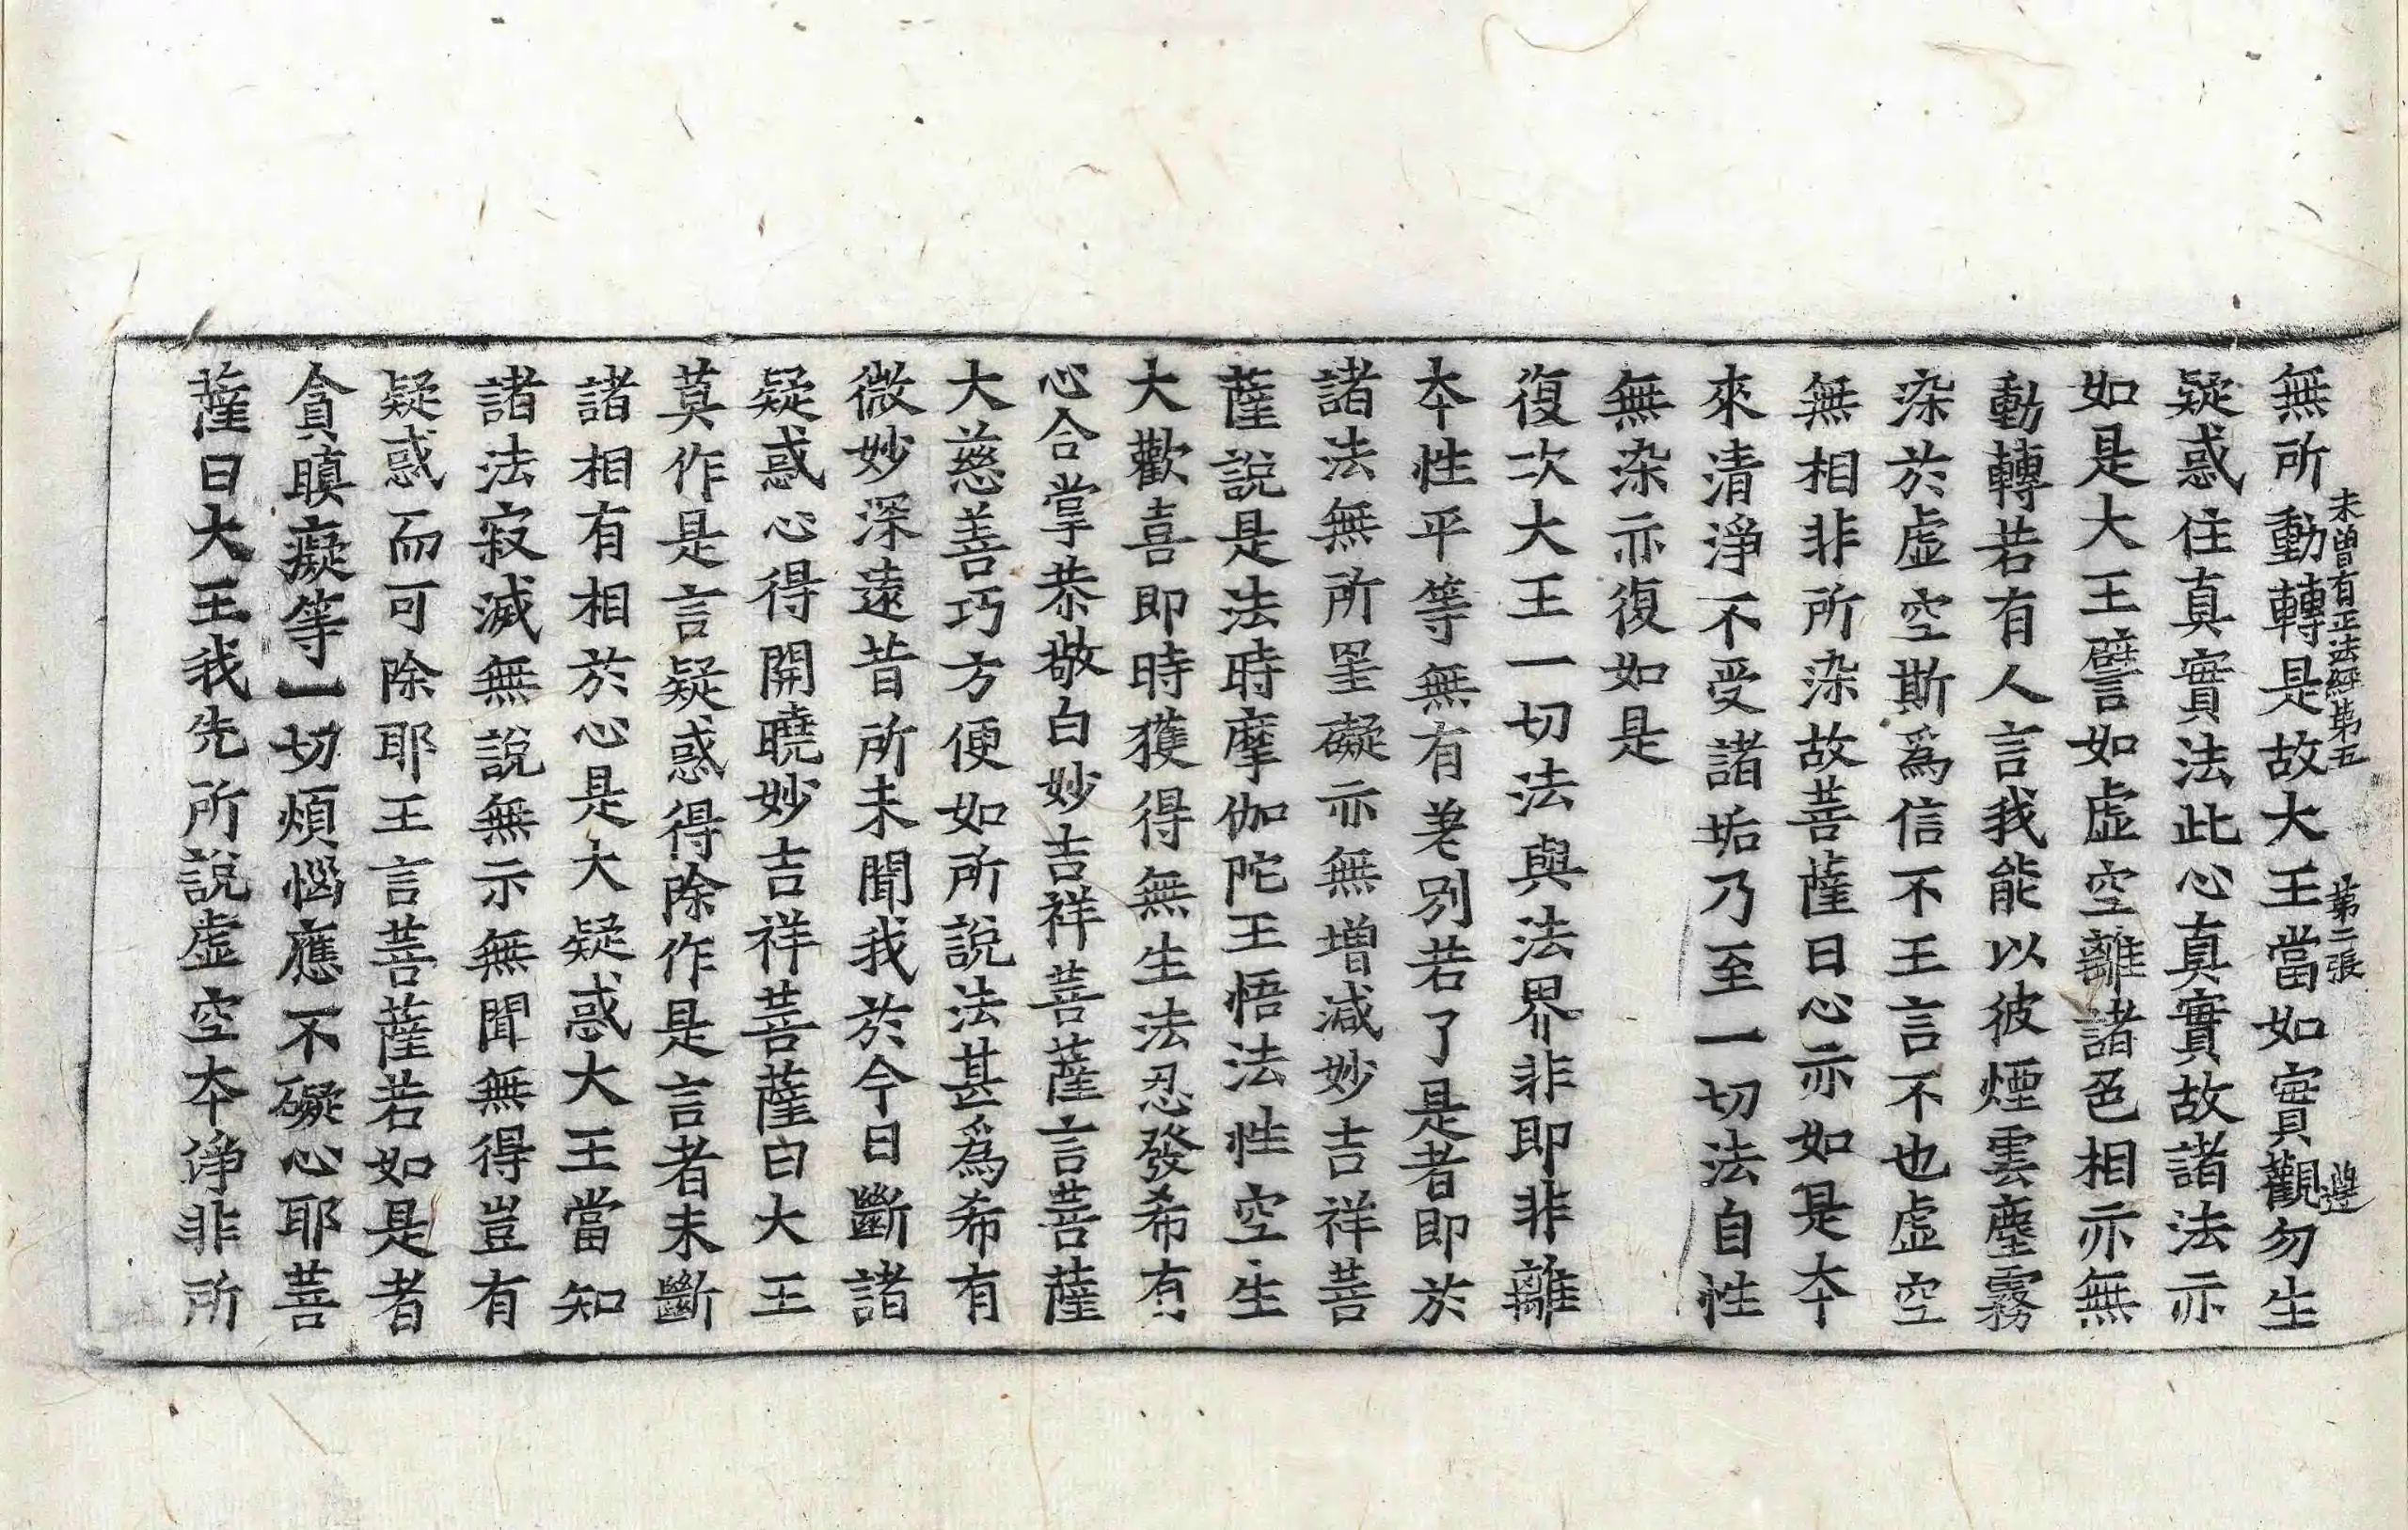 未曾有正法經第五 第二張 遵
無所動轉是故大王當如實觀勿生
疑惑住真實法此心真實故諸法亦
如是大王譬如虛空離諸色相亦無
動轉若有人言我能以彼煙雲塵霧
染於虛空斯爲信不王言不也虛空
無相非所染故菩薩曰心亦如是夲
來清淨不受諸垢乃至一切法自性
無染亦復如是
復次大王一切法與法界非即非離
夲性平等無有差别若了是者即於
諸法無所罣礙亦無增減妙吉祥菩
薩說是法時摩伽陀王悟法性空生
大歡喜即時獲得無生法忍發希有
心合掌恭敬白妙吉祥菩薩言菩薩
大慈善巧方便如所說法甚爲希有
微妙深遠昔所未聞我於今日斷諸
疑惑心得開曉妙吉祥菩薩曰大王
莫作是言疑惑得除作是言者未斷
諸相有相於心是大疑惑大王當知
諸法寂滅無說無示無聞無得豈有
疑惑而可除耶王言菩薩若如是者
貪瞋癡等一切煩惱應不礙心耶菩
薩曰大王我先所說虛空夲淨非所